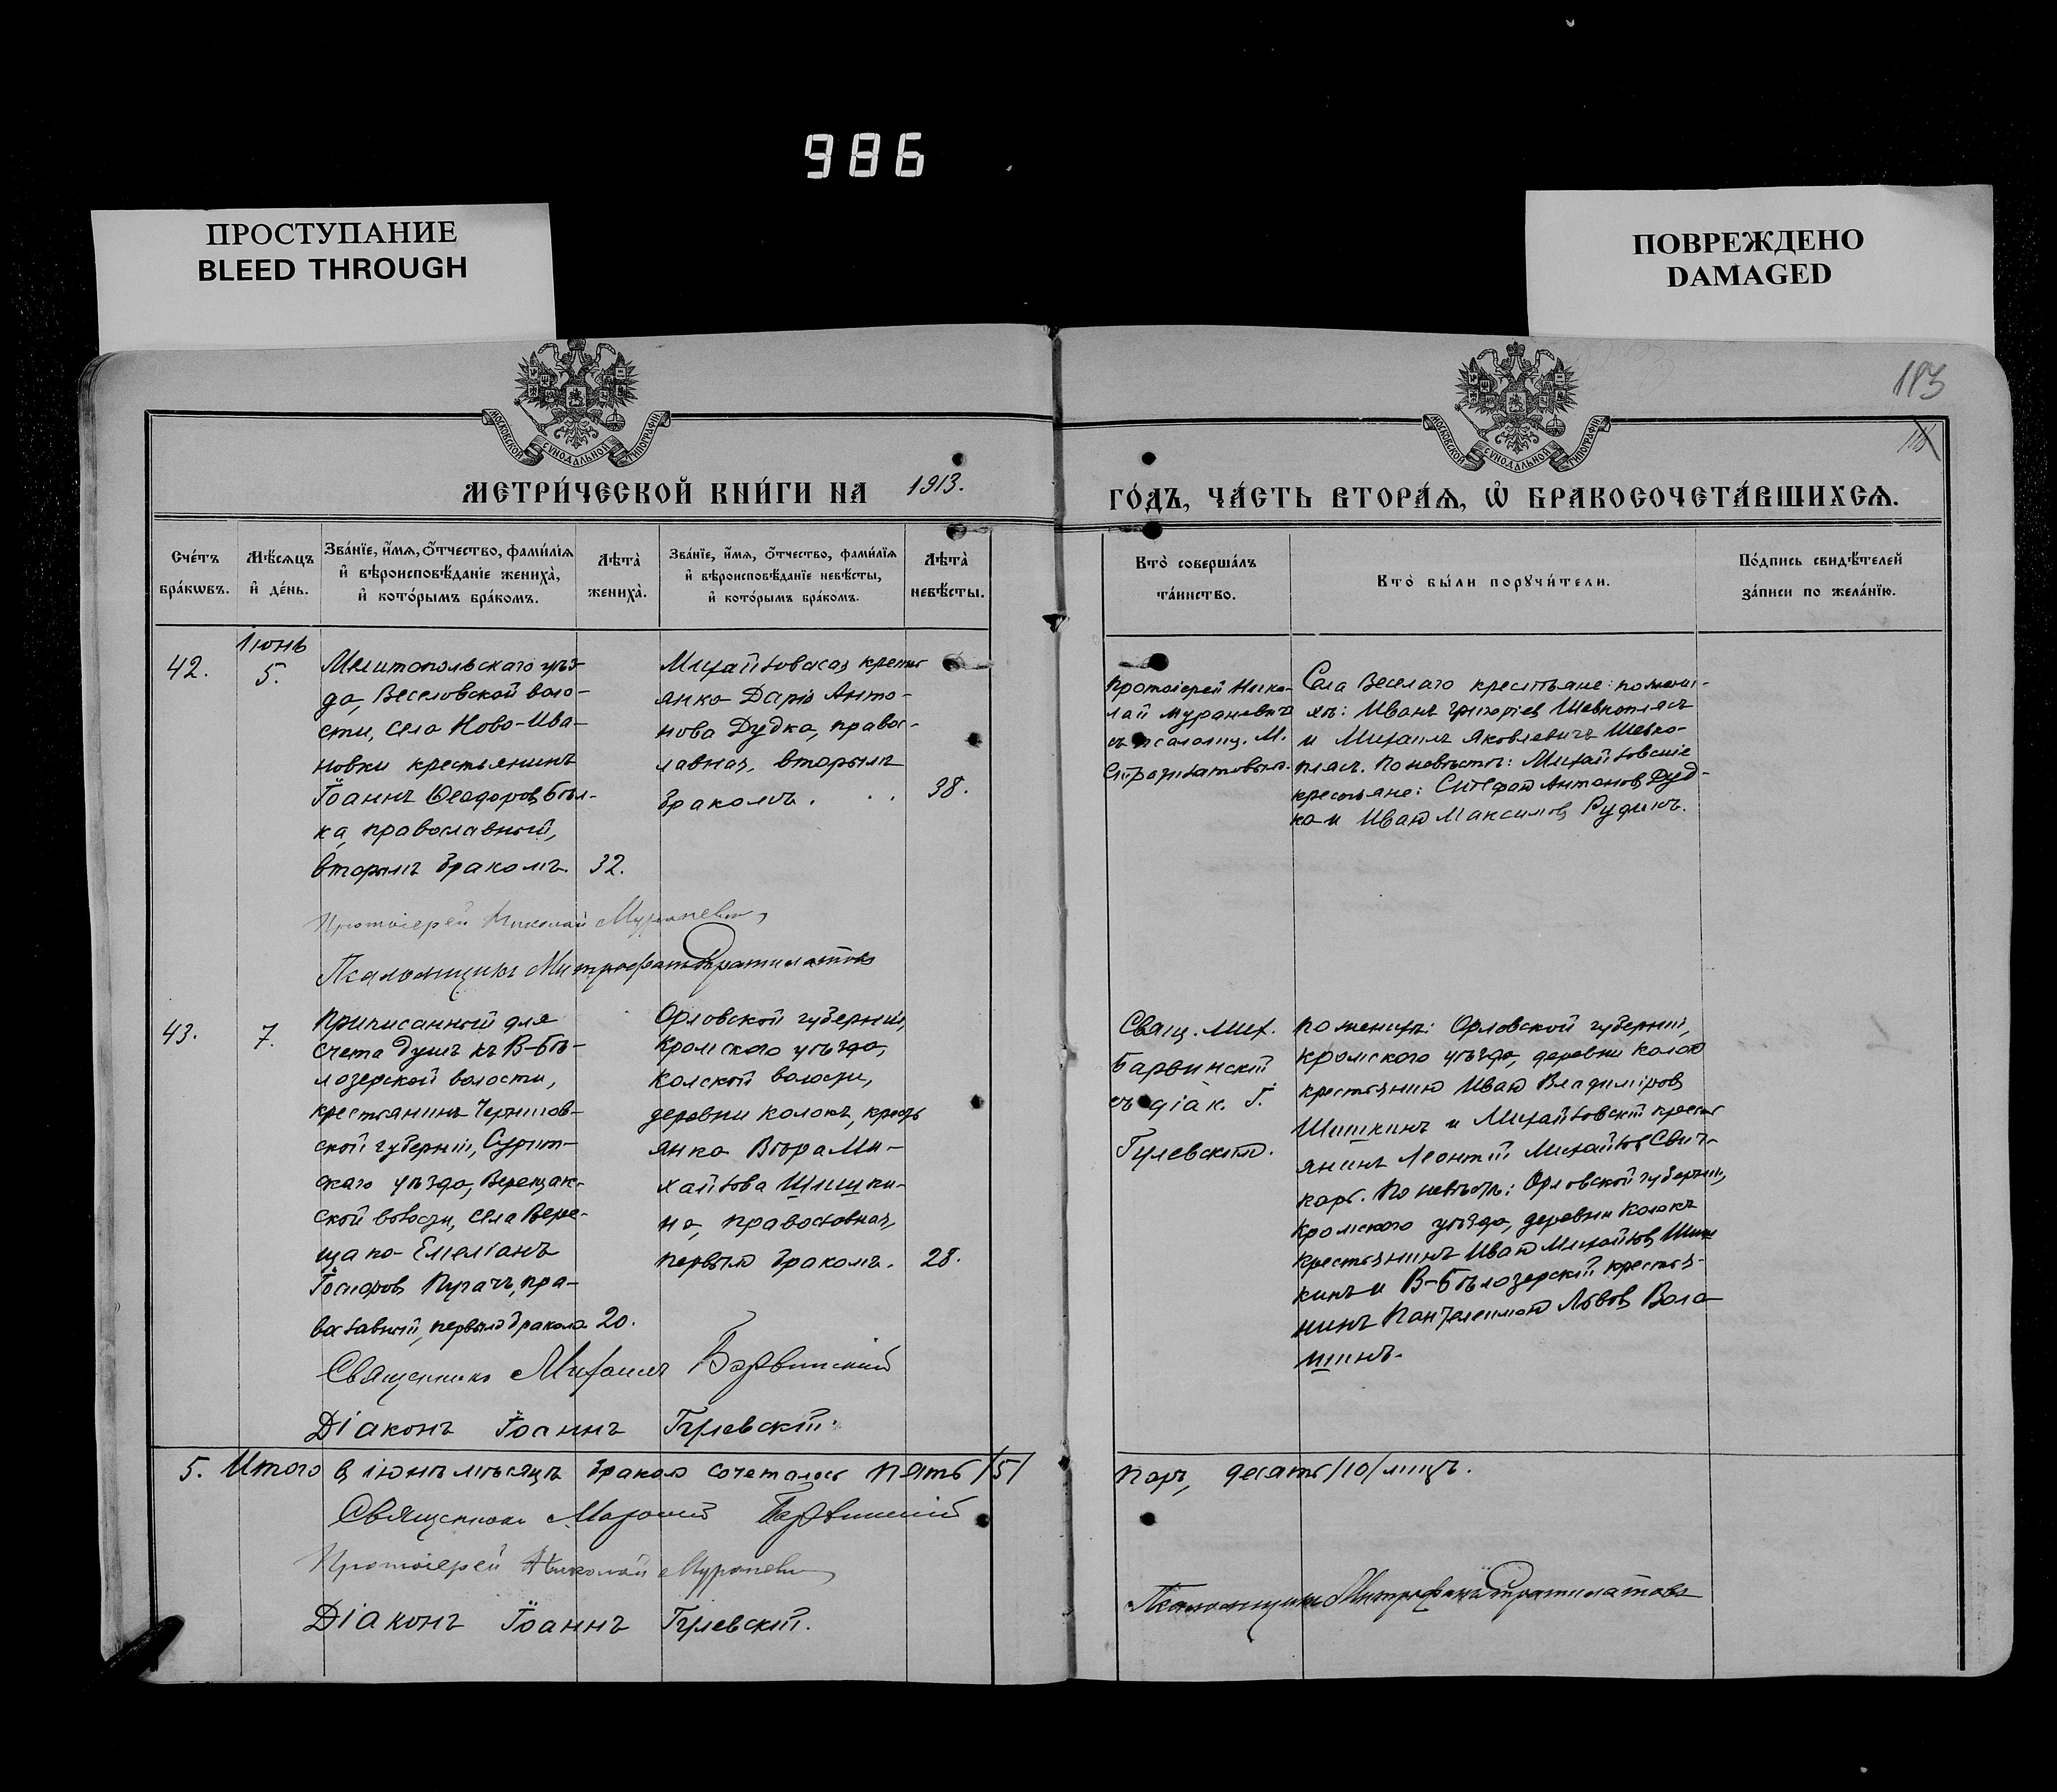 986
ПРОСТУПАНИЕ
BLEED THROUGH
ПОВРЕЖДЕНО
DAMAGED
113
МОСКОВСКОЙ СѴНОДАЛЬНОЙ ТИПОГРАФІИ
МОСКОВСКОЙ СѴНОДАЛЬНОЙ ТИПОГРАФІИ
МЕТРИ́ЧЕСКОЙ КНИ́ГИ НА 1913. ГО́ДЪ, ЧА́СТЬ ВТОРА́Я, Ѡ҆ БРАКОСОЧЕТА́ВШИХСЯ.
Сче́тъ бра́кѡвъ.
Мѣ́сяцъ и҆ де́нь.
Зва́нїе, и҆́мя, ѻ҆́тчество, фами́лїя
и҆ вѣроисповѣ́данїе жениха̀,
и҆ кото́рымъ бра́комъ.
Лѣта̀ жениха̀.
Зва́нїе, и҆́мя, ѻ҆́тчество, фами́лїя
и҆ вѣроисповѣ́данїе невѣ́сты,
и҆ кото́рымъ бра́комъ.
Лѣта̀ невѣ́сты.
Кто̀ соверша́лъ
та́инство.
Кто̀ бы́ли порꙋчи́тели.
По́дпись свидѣ́телей
за́писи по жела́нїю.
42.
Іюнь
5.
Мелитопольскаго уѣз-
да, Веселовской воло-
сти, села Ново-Ива-
новки крестьянинъ
Іоаннъ Ѳеодоровъ Бѣл-
ка, православный,
вторымъ бракомъ. 32.
Михайловская крестьянка
Дарія Анто-
нова Дудка, право-
лавная, вторымъ
бракомъ. 38.
Протоіерей Нико-
лай Мураневичъ
съ псаломщ. М.
Стратилатовымъ.
Села Веселаго крестьяне: по жени-
хѣ: Иванъ Григорьевъ Шевкоплясъ
и Михаилъ Яковлевичъ Шевко-
плясъ. По невѣстѣ: Михайловскіе
крестьяне: Стефанъ Антоновъ Дуд-
ка и Иванъ Максимовъ
Протоіерей Николай Мураневичъ
Псаломщикъ Митрофанъ Стратилатовъ
43.
7.
Приписанный для
счета душъ къ В-Бѣ-
лозерской волости,
крестьянинъ Чернигов-
ской губерніи,
скаго уѣзда, Верещак-
ской волости, села Вере-
щако Емеліанъ
Іосифовъ Пугачъ, пра-
вославный, первымъ бракомъ 20.
Орловской губерніи,
Кромского уѣзда,
Колской волости,
деревни Колокъ, кресть
янка Вѣра Ми-
хайлова Шишки-
на, православная,
первымъ бракомъ. 28.
Свящ. Мих.
Барвинскій
съ діак. І.
Гулевскимъ.
По женихѣ: Орловской губерніи,
Кромского уѣзда, деревни Колокъ
крестьянинъ Иванъ Владиміровъ
Шишкинъ и Михайловскій кресть
янинъ Леонтій Михайловъ Свич-
карь. По невѣстѣ: Орловской губерніи,
Кромского уѣзда, деревни Колокъ
крестьянинъ Иванъ Михайловъ Шиш
кинъ и В-Бѣлозерскій крестья-
нинъ Пантелеимонъ Львовъ Вола
шинъ.
Священникъ Михаилъ Барвинскій
Діаконъ Іоаннъ Гулевскій.
5. Итого въ іюнѣ мѣсяцѣ бракомъ сочеталось пять /5/ паръ, десять /10/ лицъ.
Священникъ Михаилъ Барвинскій
Протоіерей Николай Мураневичъ
Діаконъ Іоаннъ Гулевскій.
Псаломщикъ Митрофанъ Стратилатовъ